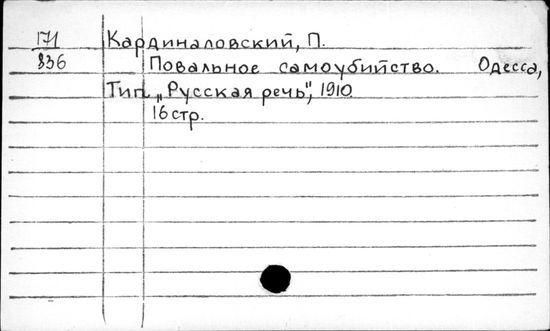 171
836
Кардиналовский, П.
Повальное самоубийство. Одесса,
Тип. „Русская речь", 1910.
16 стр.